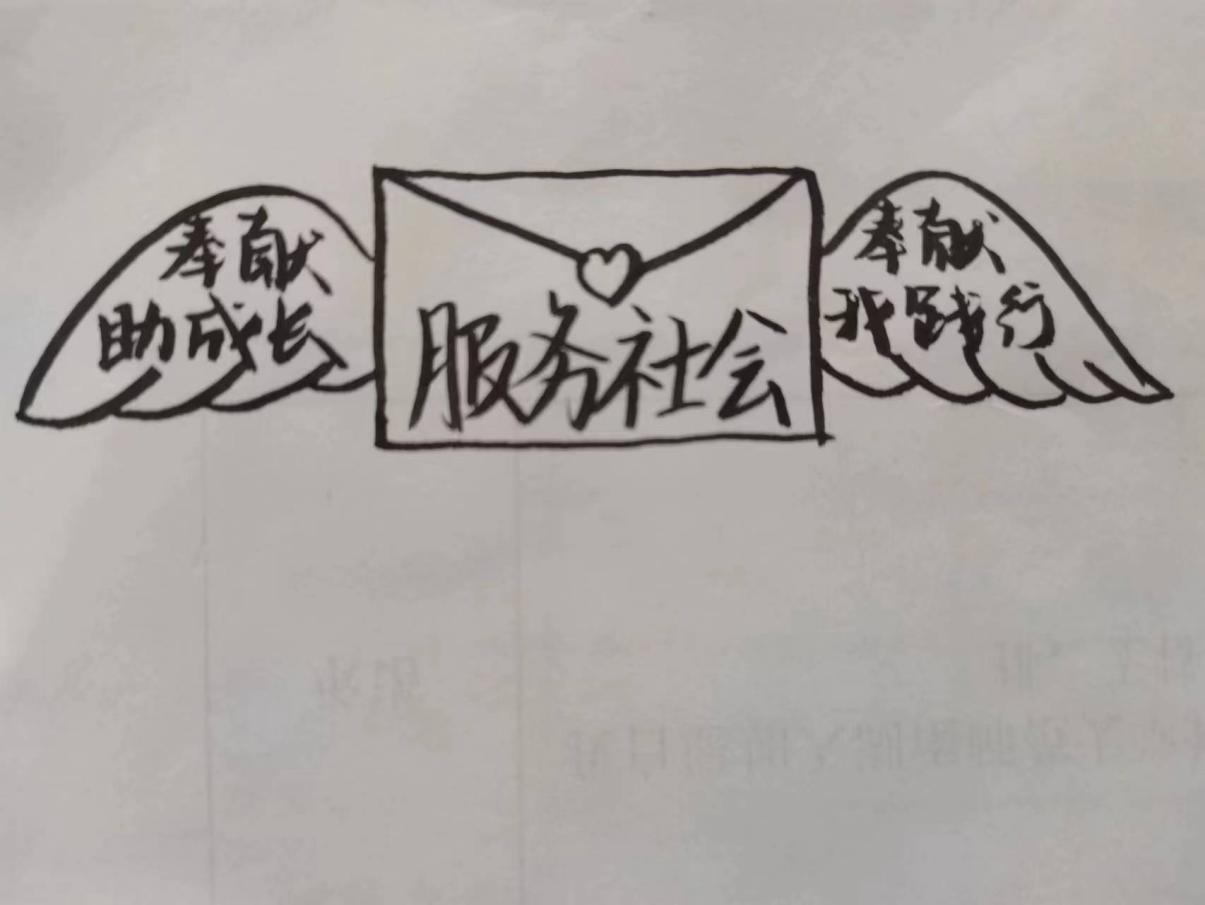 奉献
助成长
服务社会
奉献
我践行